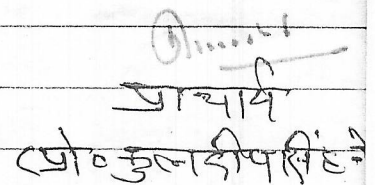 प्राचार्य
(प्रो० कुलदीप सिंह